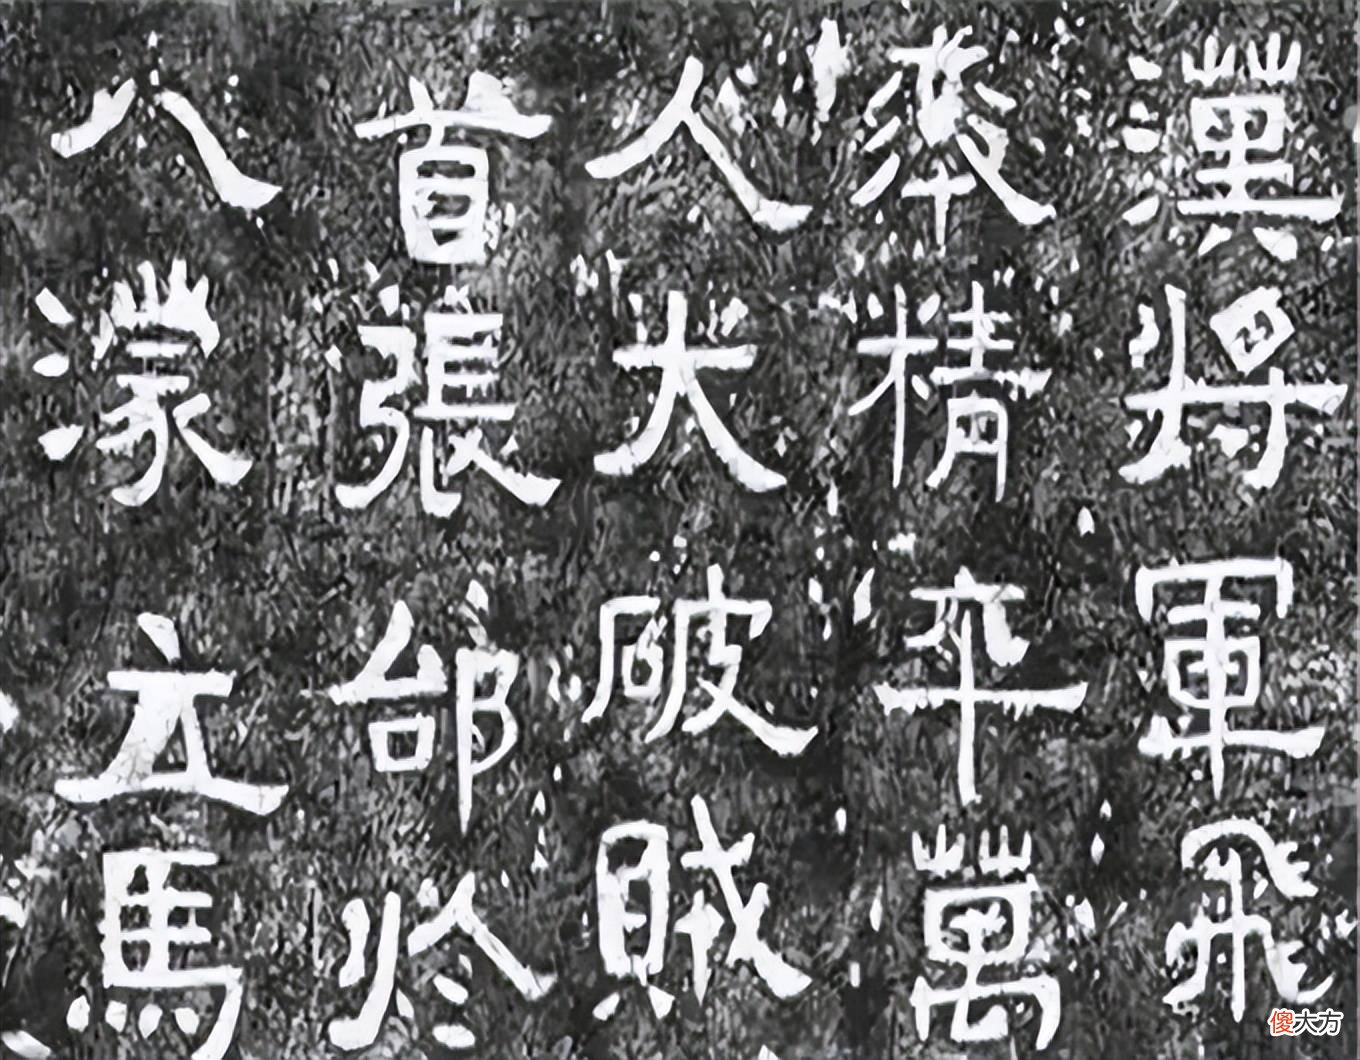 漢將軍飛
率精卒萬
人大破賊
首張郃於
八濛立馬
傻大方